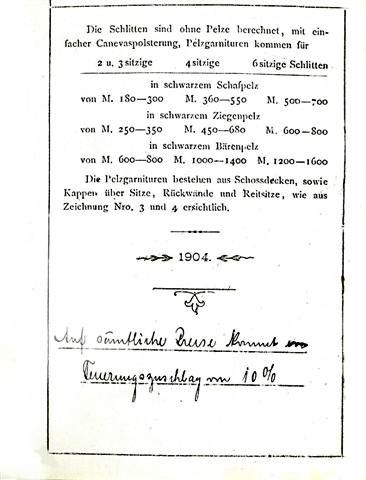 Die Schlitten sind ohne Pelze berechnet, mit ein-
facher Canevaspolsterung, Pelzgarnituren kommen für
2 u. 3 sitzige 4 sitzige 6 sitzige Schlitten
in schwarzem Schafpelz
von M. 180—300 M. 360—550 M. 500—700
in schwarzem Ziegenpelz
von M. 250—350 M. 450—680 M. 600—800
in schwarzem Bärenpelz
von M. 600—800 M. 1000—1400 M. 1200—1600
Die Pelzgarnituren bestehen aus Schossdecken, sowie
Kappen über Sitze, Rückwände und Reitsitze, wie aus
Zeichnung Nro. 3 und 4 ersichtlich.
1904.
Auf sämtliche Preise kommt
Teuerungszuschlag von 10%